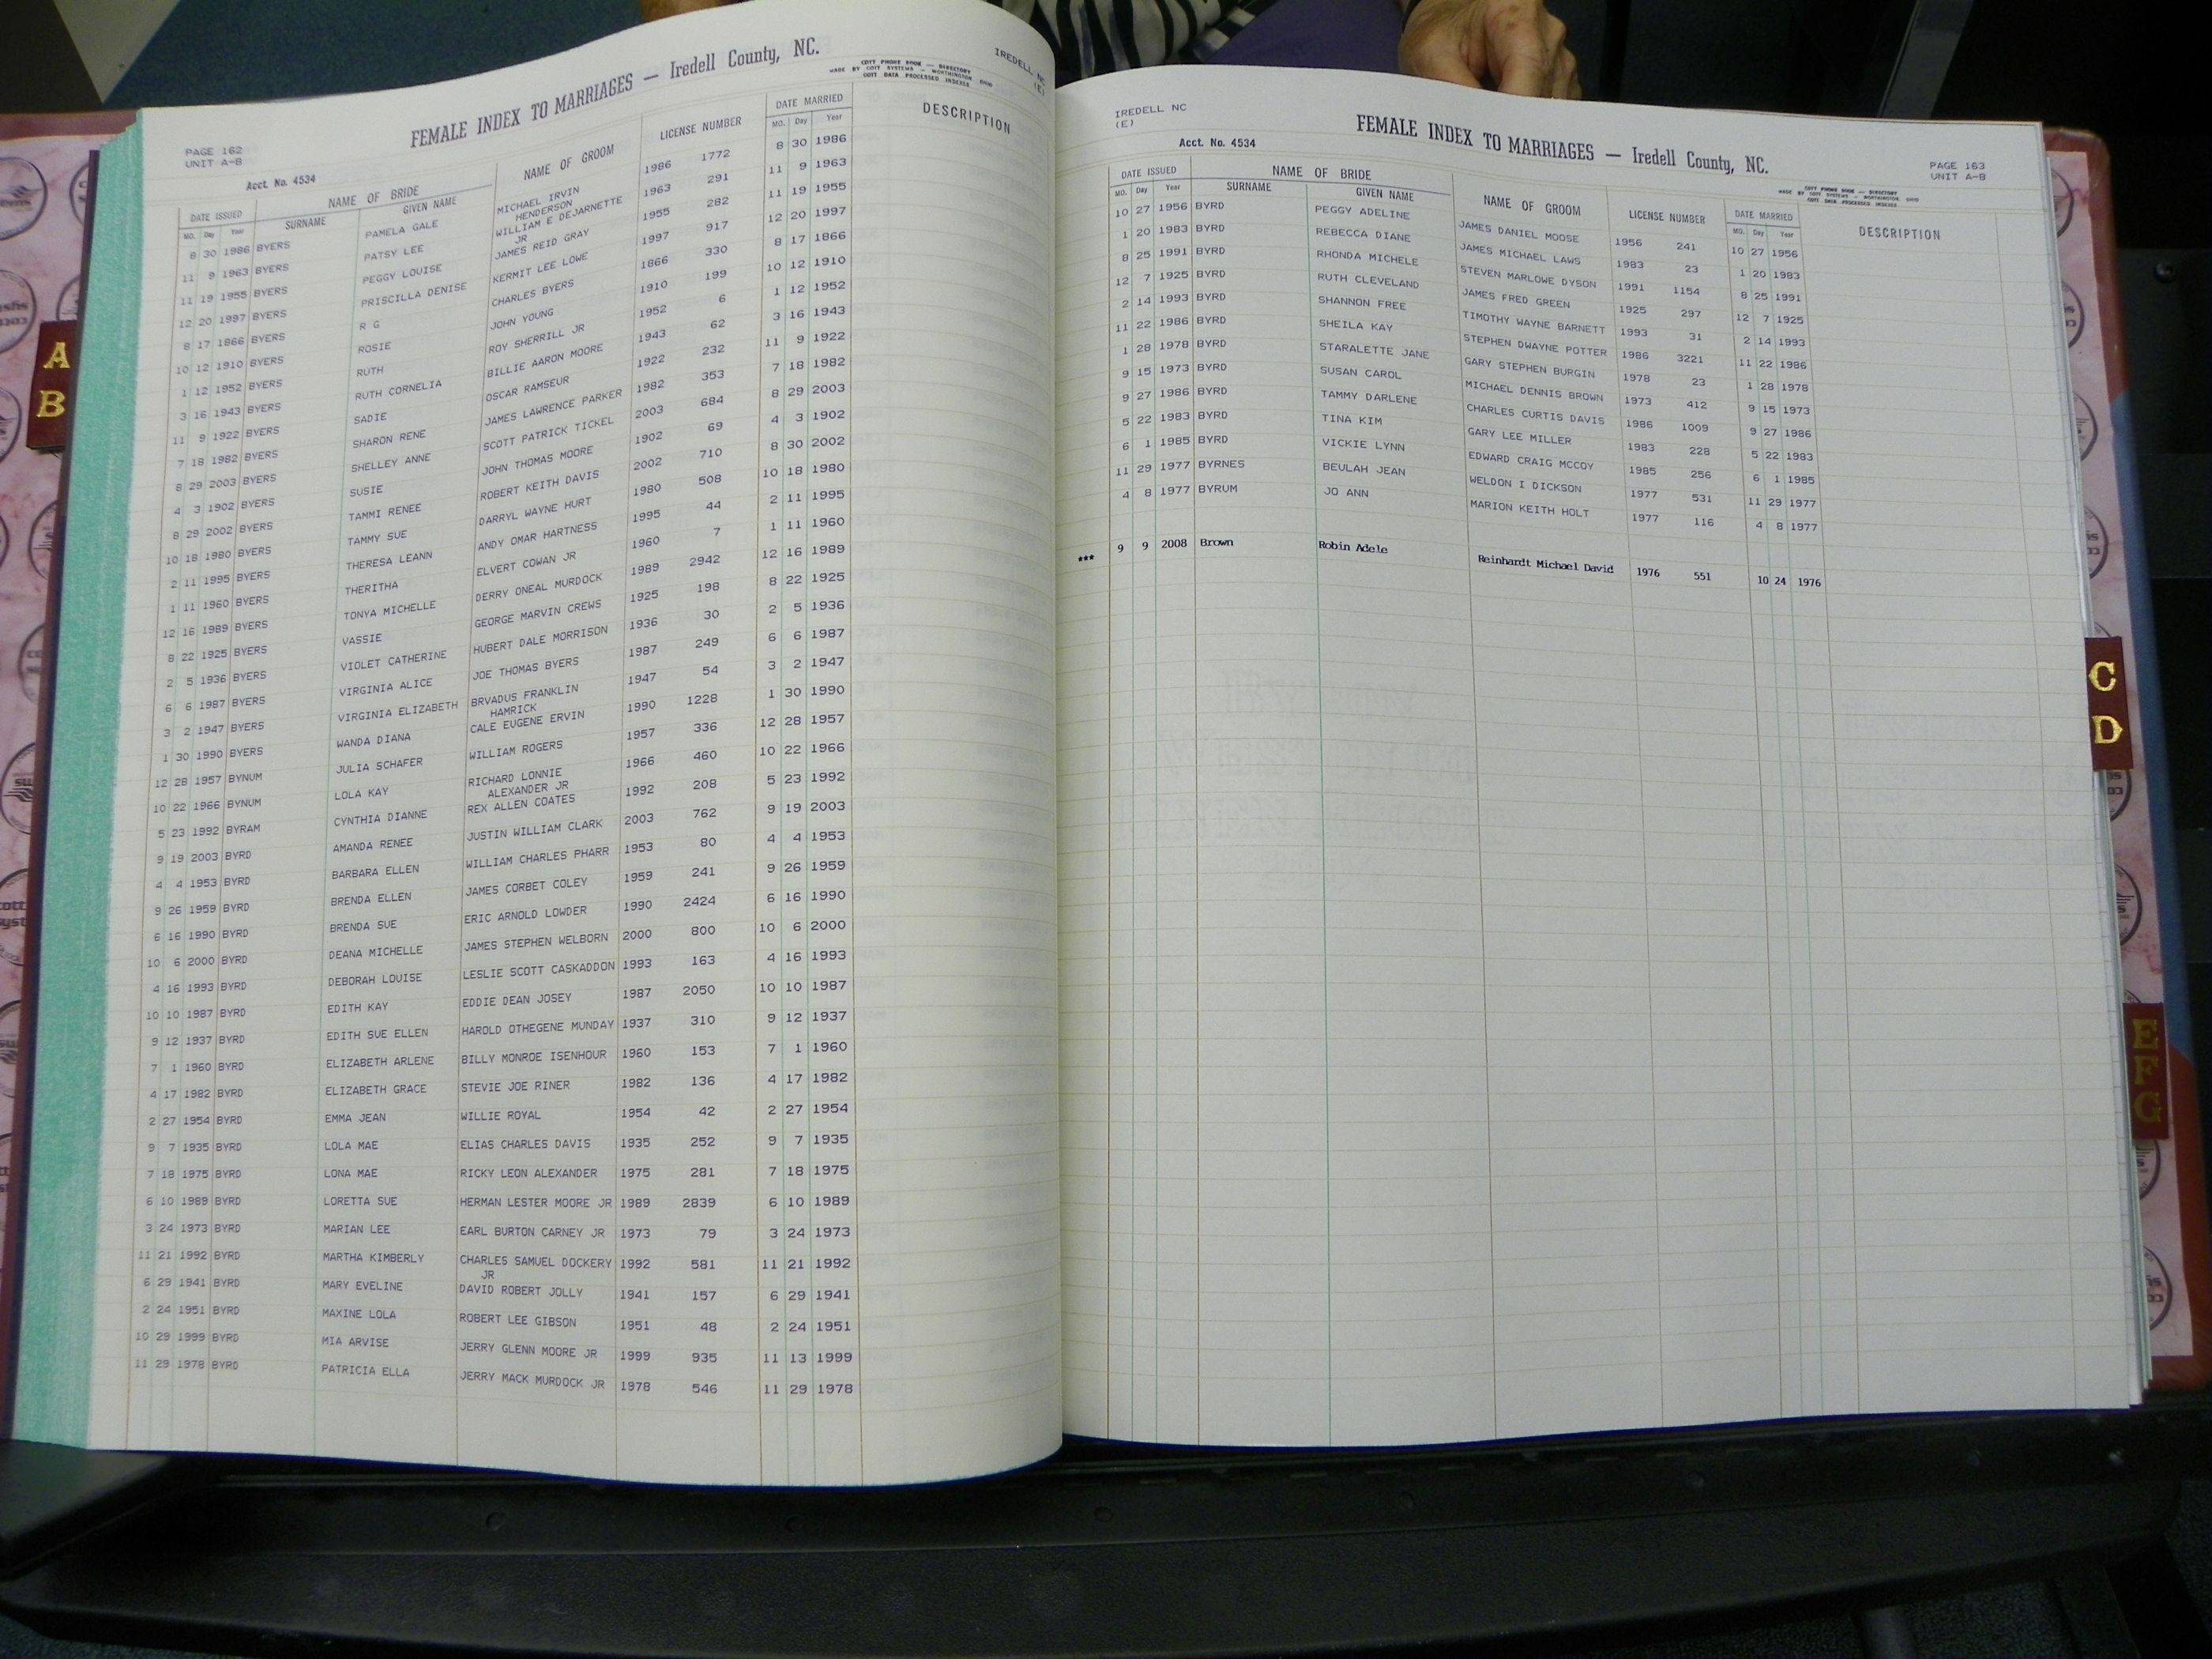 FEMALE INDEX TO MARRIAGES — Iredell County, NC.
IREDELL NC
(E)
COTT PHONE BOOK — DIRECTORY
MADE BY COTT SYSTEMS — WORTHINGTON OHIO
COTT DATA PROCESSED INDEXES
PAGE 162
UNIT A-B
Acct. No. 4534
DATE ISSUED NAME OF BRIDE NAME OF GROOM LICENSE NUMBER DATE MARRIED DESCRIPTION
MO. Day Year SURNAME GIVEN NAME MO. Day Year
8 30 1986 BYERS PAMELA GALE MICHAEL IRVIN 1986 1772 8 30 1986
HENDERSON
11 9 1963 BYERS PATSY LEE WILLIAM E DEJARNETTE 1963 291 11 9 1963
JR
11 19 1955 BYERS PEGGY LOUISE JAMES REID GRAY 1955 282 11 19 1955
12 20 1997 BYERS PRISCILLA DENISE KERMIT LEE LOWE 1997 917 12 20 1997
8 17 1866 BYERS R G CHARLES BYERS 1866 330 8 17 1866
10 12 1910 BYERS ROSIE JOHN YOUNG 1910 199 10 12 1910
1 12 1952 BYERS RUTH ROY SHERRILL JR 1952 6 1 12 1952
3 16 1943 BYERS RUTH CORNELIA BILLIE AARON MOORE 1943 62 3 16 1943
11 9 1922 BYERS SADIE OSCAR RAMSEUR 1922 232 11 9 1922
7 18 1982 BYERS SHARON RENE JAMES LAWRENCE PARKER 1982 353 7 18 1982
8 29 2003 BYERS SHELLEY ANNE SCOTT PATRICK TICKEL 2003 684 8 29 2003
4 3 1902 BYERS SUSIE JOHN THOMAS MOORE 1902 69 4 3 1902
8 29 2002 BYERS TAMMI RENEE ROBERT KEITH DAVIS 2002 710 8 30 2002
10 18 1980 BYERS TAMMY SUE DARRYL WAYNE HURT 1980 508 10 18 1980
2 11 1995 BYERS THERESA LEANN ANDY OMAR HARTNESS 1995 44 2 11 1995
1 11 1960 BYERS THERITHA ELVERT COWAN JR 1960 7 1 11 1960
12 16 1989 BYERS TONYA MICHELLE DERRY ONEAL MURDOCK 1989 2942 12 16 1989
8 22 1925 BYERS VASSIE GEORGE MARVIN CREWS 1925 198 8 22 1925
2 5 1936 BYERS VIOLET CATHERINE HUBERT DALE MORRISON 1936 30 2 5 1936
6 6 1987 BYERS VIRGINIA ALICE JOE THOMAS BYERS 1987 249 6 6 1987
3 2 1947 BYERS VIRGINIA ELIZABETH BRVADUS FRANKLIN 1947 54 3 2 1947
HAMRICK
1 30 1990 BYERS WANDA DIANA CALE EUGENE ERVIN 1990 1228 1 30 1990
12 28 1957 BYNUM JULIA SCHAFER WILLIAM ROGERS 1957 336 12 28 1957
10 22 1966 BYNUM LOLA KAY RICHARD LONNIE 1966 460 10 22 1966
ALEXANDER JR
5 23 1992 BYRAM CYNTHIA DIANNE REX ALLEN COATES 1992 208 5 23 1992
9 19 2003 BYRD AMANDA RENEE JUSTIN WILLIAM CLARK 2003 762 9 19 2003
4 4 1953 BYRD BARBARA ELLEN WILLIAM CHARLES PHARR 1953 80 4 4 1953
9 26 1959 BYRD BRENDA ELLEN JAMES CORBET COLEY 1959 241 9 26 1959
6 16 1990 BYRD BRENDA SUE ERIC ARNOLD LOWDER 1990 2424 6 16 1990
10 6 2000 BYRD DEANA MICHELLE JAMES STEPHEN WELBORN 2000 800 10 6 2000
4 16 1993 BYRD DEBORAH LOUISE LESLIE SCOTT CASKADDON 1993 163 4 16 1993
10 10 1987 BYRD EDITH KAY EDDIE DEAN JOSEY 1987 2050 10 10 1987
9 12 1937 BYRD EDITH SUE ELLEN HAROLD OTHEGENE MUNDAY 1937 310 9 12 1937
7 1 1960 BYRD ELIZABETH ARLENE BILLY MONROE ISENHOUR 1960 153 7 1 1960
4 17 1982 BYRD ELIZABETH GRACE STEVIE JOE RINER 1982 136 4 17 1982
2 27 1954 BYRD EMMA JEAN WILLIE ROYAL 1954 42 2 27 1954
9 7 1935 BYRD LOLA MAE ELIAS CHARLES DAVIS 1935 252 9 7 1935
7 18 1975 BYRD LONA MAE RICKY LEON ALEXANDER 1975 281 7 18 1975
6 10 1989 BYRD LORETTA SUE HERMAN LESTER MOORE JR 1989 2839 6 10 1989
3 24 1973 BYRD MARIAN LEE EARL BURTON CARNEY JR 1973 79 3 24 1973
11 21 1992 BYRD MARTHA KIMBERLY CHARLES SAMUEL DOCKERY 1992 581 11 21 1992
JR
6 29 1941 BYRD MARY EVELINE DAVID ROBERT JOLLY 1941 157 6 29 1941
2 24 1951 BYRD MAXINE LOLA ROBERT LEE GIBSON 1951 48 2 24 1951
10 29 1999 BYRD MIA ARVISE JERRY GLENN MOORE JR 1999 935 11 13 1999
11 29 1978 BYRD PATRICIA ELLA JERRY MACK MURDOCK JR 1978 546 11 29 1978
IREDELL NC
(E)
FEMALE INDEX TO MARRIAGES — Iredell County, NC.
Acct. No. 4534
PAGE 163
UNIT A-B
COTT PHONE BOOK — DIRECTORY
MADE BY COTT SYSTEMS — WORTHINGTON OHIO
COTT DATA PROCESSED INDEXES
DATE ISSUED NAME OF BRIDE NAME OF GROOM LICENSE NUMBER DATE MARRIED DESCRIPTION
MO. Day Year SURNAME GIVEN NAME MO. Day Year
10 27 1956 BYRD PEGGY ADELINE JAMES DANIEL MOOSE 1956 241 10 27 1956
1 20 1983 BYRD REBECCA DIANE JAMES MICHAEL LAWS 1983 23 1 20 1983
8 25 1991 BYRD RHONDA MICHELE STEVEN MARLOWE DYSON 1991 1154 8 25 1991
12 7 1925 BYRD RUTH CLEVELAND JAMES FRED GREEN 1925 297 12 7 1925
2 14 1993 BYRD SHANNON FREE TIMOTHY WAYNE BARNETT 1993 31 2 14 1993
11 22 1986 BYRD SHEILA KAY STEPHEN DWAYNE POTTER 1986 3221 11 22 1986
1 28 1978 BYRD STARALETTE JANE GARY STEPHEN BURGIN 1978 23 1 28 1978
9 15 1973 BYRD SUSAN CAROL MICHAEL DENNIS BROWN 1973 412 9 15 1973
9 27 1986 BYRD TAMMY DARLENE CHARLES CURTIS DAVIS 1986 1009 9 27 1986
5 22 1983 BYRD TINA KIM GARY LEE MILLER 1983 228 5 22 1983
6 1 1985 BYRD VICKIE LYNN EDWARD CRAIG MCCOY 1985 256 6 1 1985
11 29 1977 BYRNES BEULAH JEAN WELDON I DICKSON 1977 531 11 29 1977
4 8 1977 BYRUM JO ANN MARION KEITH HOLT 1977 116 4 8 1977
*** 9 9 2008 Brown Robin Adele Reinhardt Michael David 1976 551 10 24 1976
A
B
C
D
E
F
G